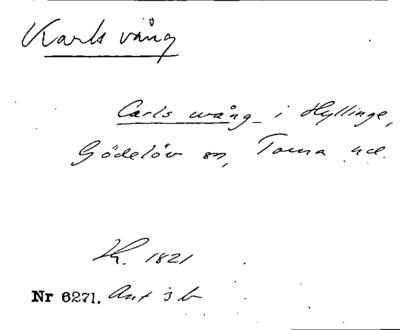 Karls vång
Carls wång i Hyllinge,
Gödelöv sn, Torna hd.
1821
Nr 6271.